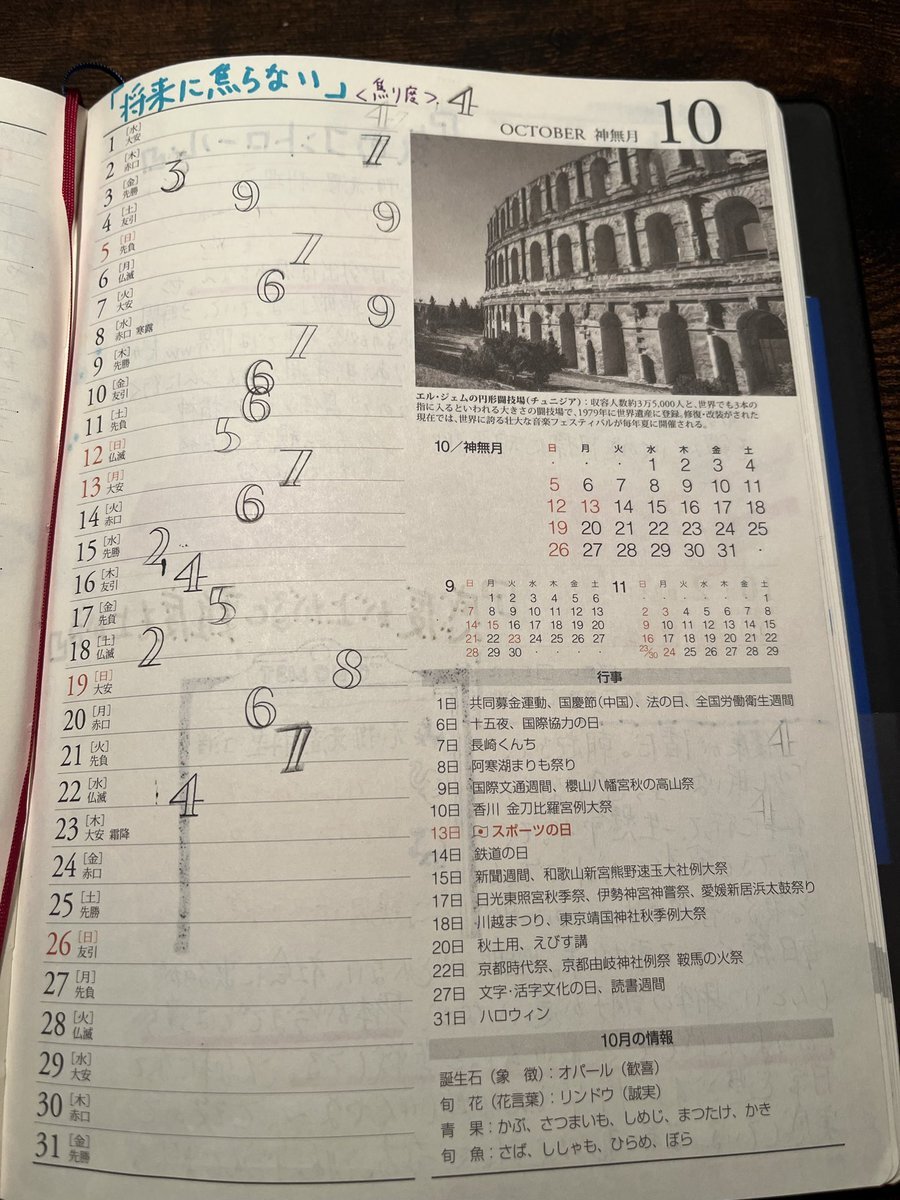 「将来に焦らない」 <焦り度>. 4
OCTOBER 神無月 10
1 [水] 大安 7
2 [木] 赤口 3
3 [金] 先勝 9
4 [土] 友引 9
5 [日] 先負 7
6 [月] 仏滅 6
7 [火] 大安 9
8 [水] 赤口 寒露 7
9 [木] 先勝 6
10 [金] 友引 6
11 [土] 先負 5
12 [日] 仏滅 7
13 [月] 大安 6
14 [火] 赤口 2
15 [水] 先勝 4
16 [木] 友引 5
17 [金] 先負 2
18 [土] 仏滅 8
19 [日] 大安 6
20 [月] 赤口 7
21 [火] 先負
22 [水] 仏滅 4
23 [木] 大安 霜降
24 [金] 赤口
25 [土] 先勝
26 [日] 友引
27 [月] 先負
28 [火] 仏滅
29 [水] 大安
30 [木] 赤口
31 [金] 先勝
エル・ジェムの円形闘技場(チュニジア):収容人数約3万5,000人と、世界でも3本の
指に入るといわれる大きさの闘技場で、1979年に世界遺産に登録。修復・改装がされた
現在では、世界に誇る壮大な音楽フェスティバルが毎年夏に開催される。
10/神無月
日 月 火 水 木 金 土
・ ・ ・ 1 2 3 4
5 6 7 8 9 10 11
12 13 14 15 16 17 18
19 20 21 22 23 24 25
26 27 28 29 30 31 ・
9
日 月 火 水 木 金 土
・ 1 2 3 4 5 6
7 8 9 10 11 12 13
14 15 16 17 18 19 20
21 22 23 24 25 26 27
28 29 30 ・ ・ ・ ・
11
日 月 火 水 木 金 土
・ ・ ・ ・ ・ ・ 1
2 3 4 5 6 7 8
9 10 11 12 13 14 15
16 17 18 19 20 21 22
23/30 24 25 26 27 28 29
行事
1日 共同募金運動、国慶節(中国)、法の日、全国労働衛生週間
6日 十五夜、国際協力の日
7日 長崎くんち
8日 阿寒湖まりも祭り
9日 国際文通週間、櫻山八幡宮秋の高山祭
10日 香川 金刀比羅宮例大祭
13日 スポーツの日
14日 鉄道の日
15日 新聞週間、和歌山新宮熊野速玉大社例大祭
17日 日光東照宮秋季祭、伊勢神宮神嘗祭、愛媛新居浜太鼓祭り
18日 川越まつり、東京靖国神社秋季例大祭
20日 秋土用、えびす講
22日 京都時代祭、京都由岐神社例祭 鞍馬の火祭
27日 文字・活字文化の日、読書週間
31日 ハロウィン
10月の情報
誕生石(象 徴):オパール(歓喜)
旬 花(花言葉):リンドウ(誠実)
青 果:かぶ、さつまいも、しめじ、まつたけ、かき
旬 魚:さば、ししゃも、ひらめ、ぼら